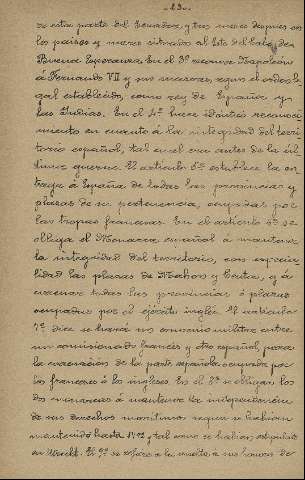 -23-
ra esta parte del Ecuador, y tres meses despues en
los paises y mares situados al Este del Cabo de
Buena Esperanza. En el 3º reconoce Napoleón
á Fernando VII y sus sucesores, segun el orden le-
gal establecido, como rey de España y
las Indias. En el 4º hace idéntico reconoci-
miento en cuanto á la integridad del terri-
torio español, tal cual era antes de la úl-
tima guerra. El artículo 5º establece la en-
trega á España de todas las provincias y
plazas de su pertenencia, ocupadas por
las tropas francesas. En el artículo 6º se
obliga el Monarca español á mantener
la integridad del territorio, con especia-
lidad las plazas de Mahon y Ceuta, y á
evacuar todas las provincias ó plazas
ocupadas por el ejército inglés. El artículo
7º dice se hará un convenio militar entre
un comisionado francés y otro español, para
la evacuación de la parte española ocupada por
los franceses ó los ingleses. En el 8º se obligan los
dos monarcas á mantener la independencia
de sus derechos marítimos segun se habian
mantenido hasta 1792 y tal como se habian estipulado
en Utrecht. El 9º se refiere á la vuelta á sus honores de